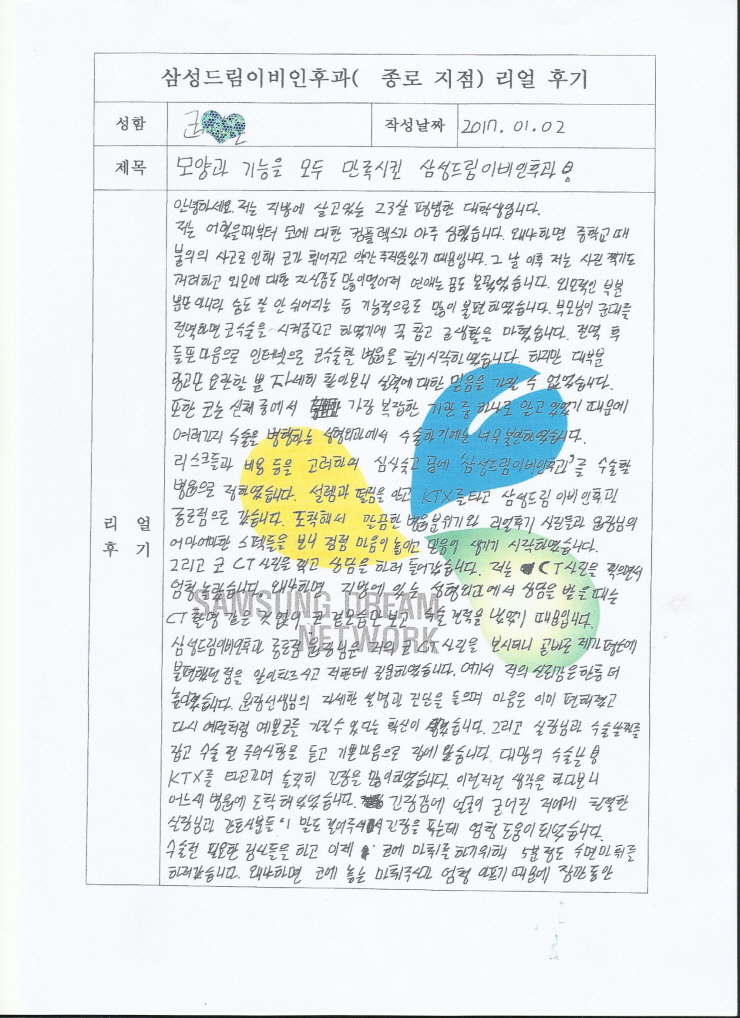 삼성드림이비인후과( 종로 지점) 리얼 후기
성함
작성날짜 2017. 01. 02
제목 모양과 기능을 모두 만족시킨 삼성드림이비인후과
리 얼
후 기
안녕하세요. 저는 지방에 살고있는 23살 평범한 대학생입니다.
저는 어렸을때부터 코에 대한 컴플렉스가 아주 심했습니다. 왜냐하면 중학교 때
불의의 사고로 인해 코가 휘어지고 약간 주저앉았기 때문입니다. 그 날 이후 저는 사진 찍기도
꺼려하고 외모에 대한 자신감도 많이 떨어져 연애는 꿈도 못꿨었습니다. 외모적인 부분
뿐만 아니라 숨도 잘 안 쉬어지는 등 기능적으로도 많이 불편하였습니다. 부모님이 군대를
전역하면 코수술을 시켜준다고 하였기에 꾹 참고 군생활을 마쳤습니다. 전역 후
들뜬 마음으로 인터넷으로 코수술할 병원을 찾기 시작하였습니다. 하지만 대부분
광고만 요란할 뿐 자세히 찾아보니 실력에 대한 믿음을 가질 수 없었습니다.
또한 코는 신체 중에서 가장 복잡한 기관 중 하나로 알고 있었기 때문에
여러가지 수술을 병행하는 성형외과에서 수술하기에는 너무 불편하였습니다.
리스크들과 비용 등을 고려하여 심사숙고 끝에 '삼성드림이비인후과'를 수술할
병원으로 정하였습니다. 설렘과 떨림을 안고 KTX를 타고 삼성드림이비인후과
종로점으로 갔습니다. 도착해서 깔끔한 병원분위기와 리얼후기 사진들과 원장님의
어마어마한 스펙들을 보니 점점 마음이 놓이고 믿음이 생기기 시작하였습니다.
그리고 코 CT사진을 찍고 상담을 하러 들어갔습니다. 저는 CT사진을 찍으면서
엄청 놀랐습니다. 왜냐하면 지방에 있는 성형외과에서 상담을 받을 때는
CT 촬영 같은 것 없이 코 겉모습만 보고 수술 견적을 냈었기 때문입니다.
삼성드림이비인후과 종로점 원장님은 저의 코 CT사진을 보시더니 곧바로 제가 평소에
불편했던 점을 알아차리시고 저한테 질문하였습니다. 여기서 저의 신뢰감은 한층 더
높아졌습니다. 원장선생님의 자세한 설명과 진단을 들으며 마음은 이미 편해졌고
다시 예전처럼 예쁜코를 가질수 있다는 확신이 생겼습니다. 그리고 실장님과 수술날짜를
잡고 수술 전 주의사항을 듣고 기쁜마음으로 집에 왔습니다. 대망의 수술날
KTX를 타고가며 솔직히 긴장을 많이하였습니다. 이런저런 생각을 하다보니
어느새 병원에 도착해있었습니다. 긴장감에 얼굴이 굳어진 저에게 친절한
실장님과 간호사분들이 말도 걸어주셔서 긴장을 푸는데 엄청 도움이 되었습니다.
수술전 필요한 검사들을 하고 이제 코에 마취를 하기위해 5분정도 수면마취를
하러갔습니다. 왜냐하면 코에 놓는 마취주사가 엄청 아프기 때문에 잠깐동안
SAMSUNG DREAM
NETWORK